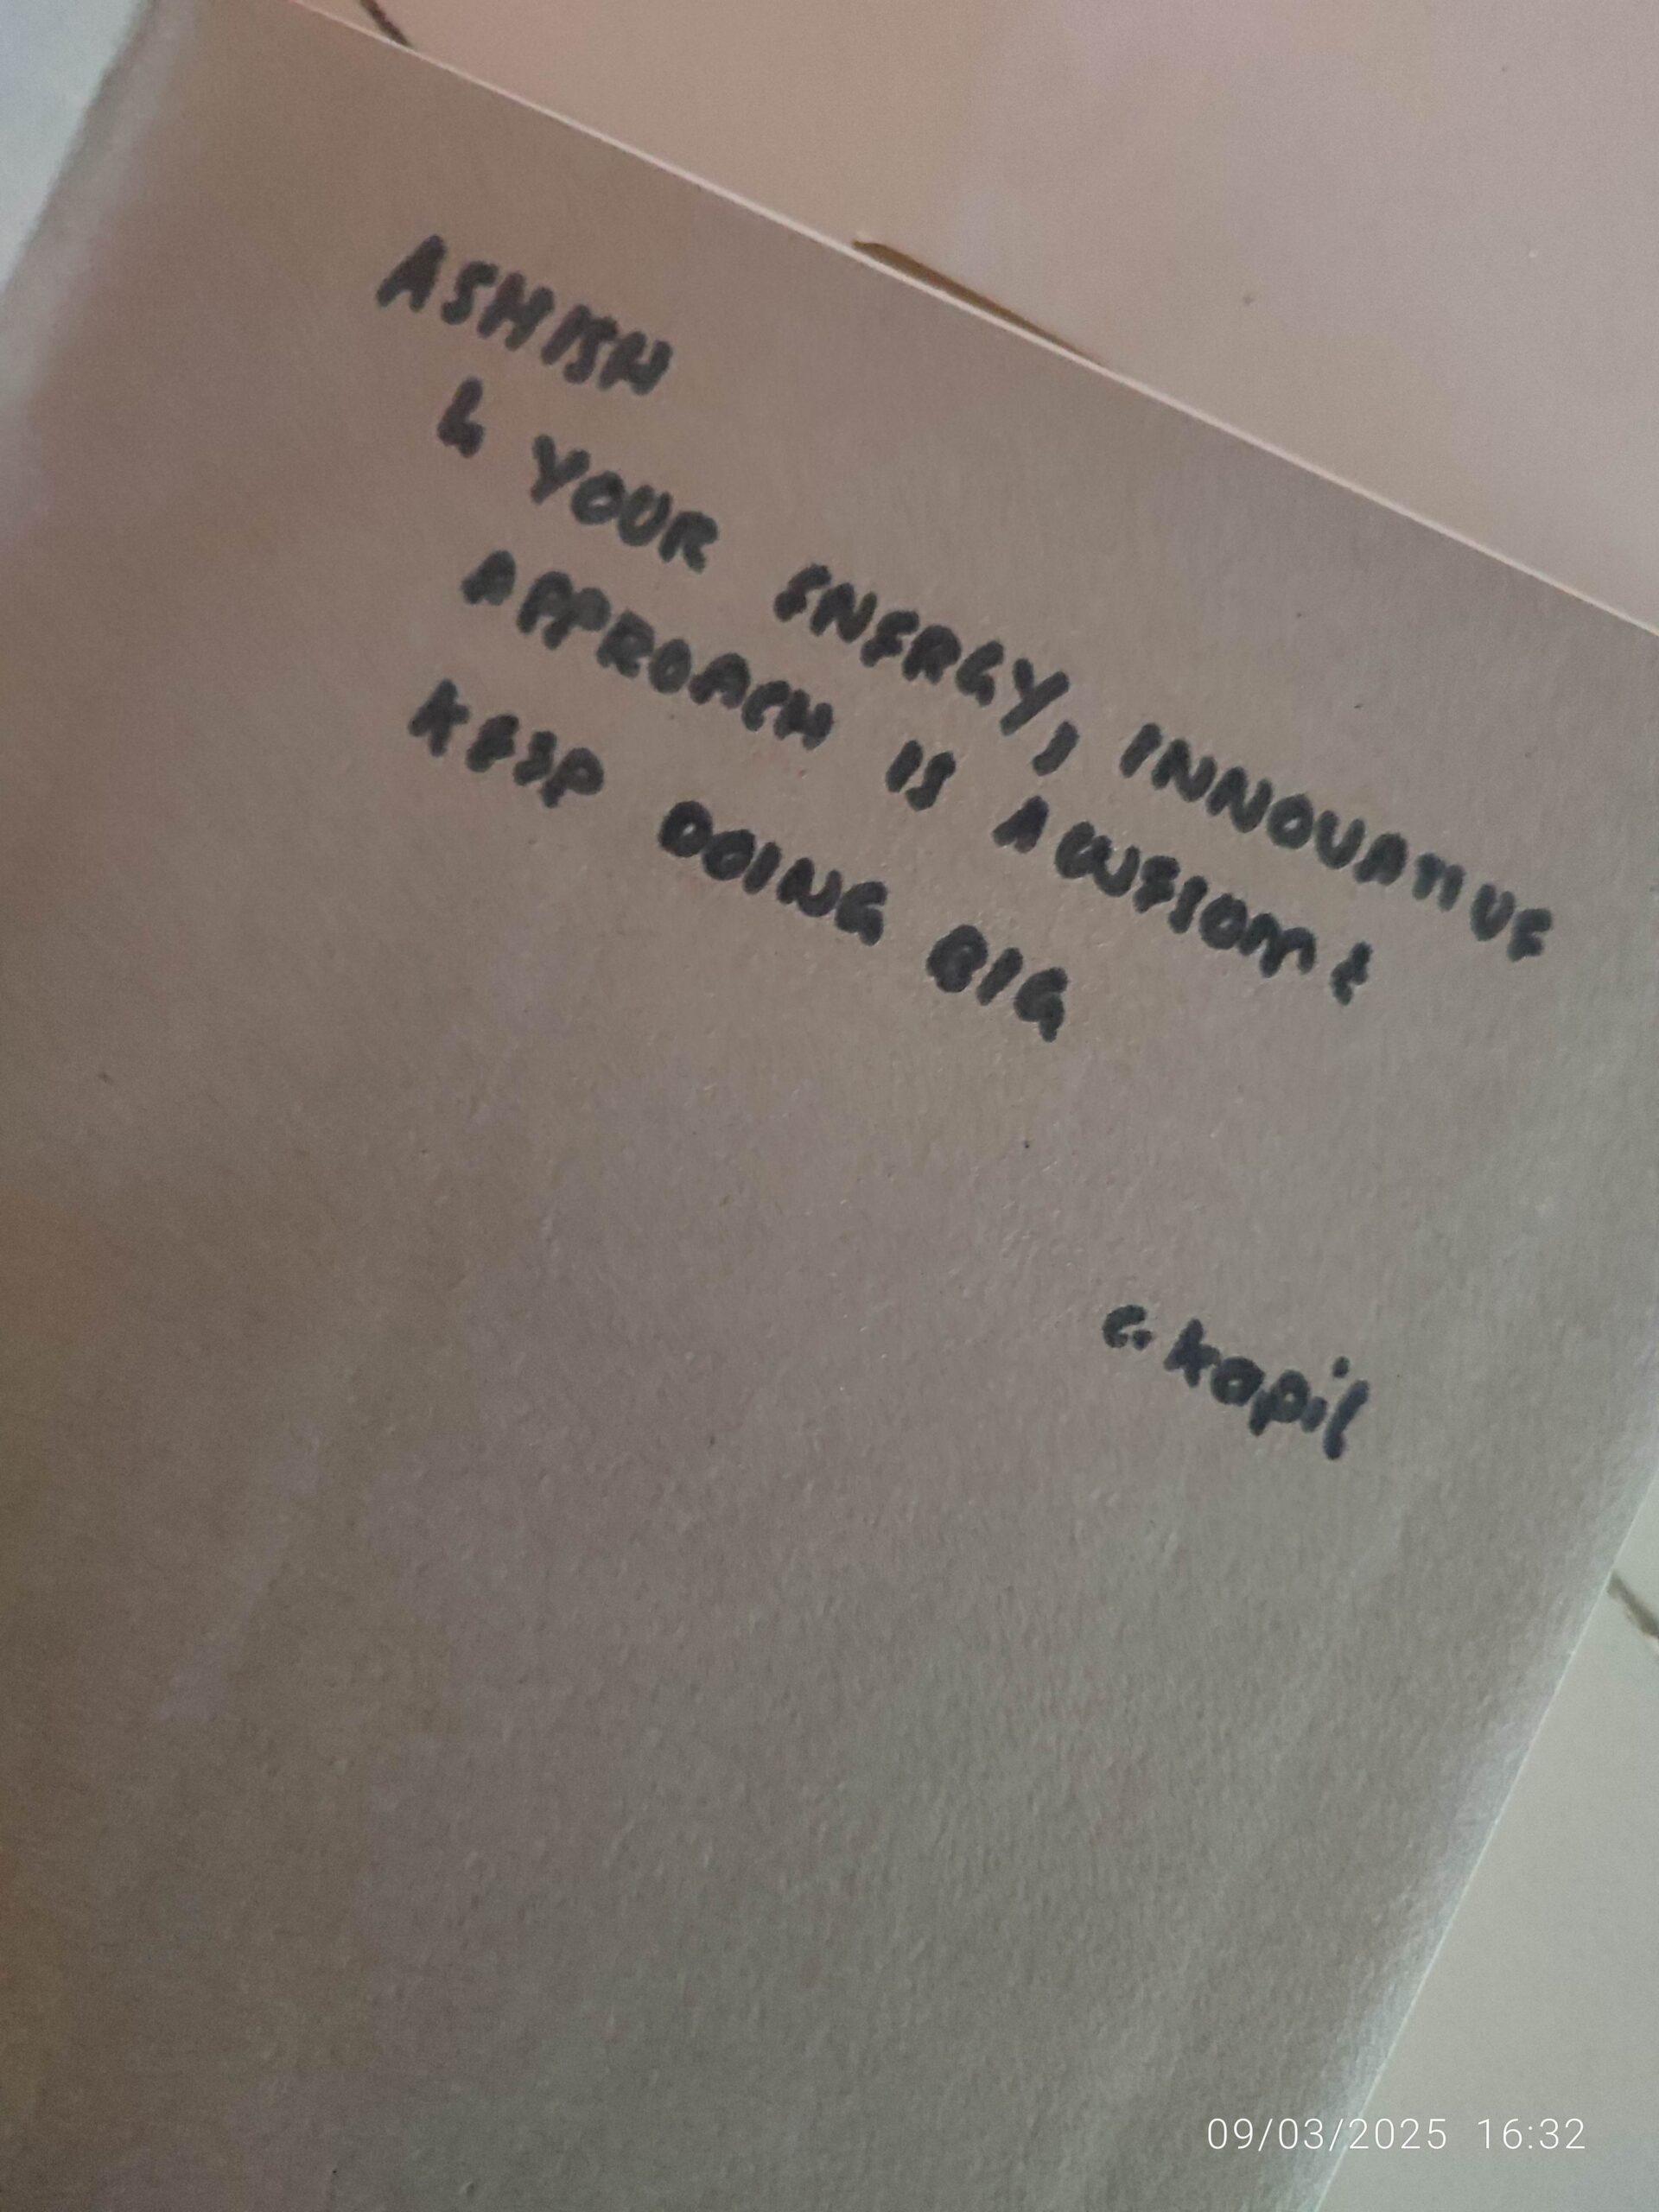 ASHISH
↳ YOUR ENERGY, INNOVATIVE
APPROACH IS AWESOME
KEEP DOING BIG
C. Kapil
09/03/2025 16:32